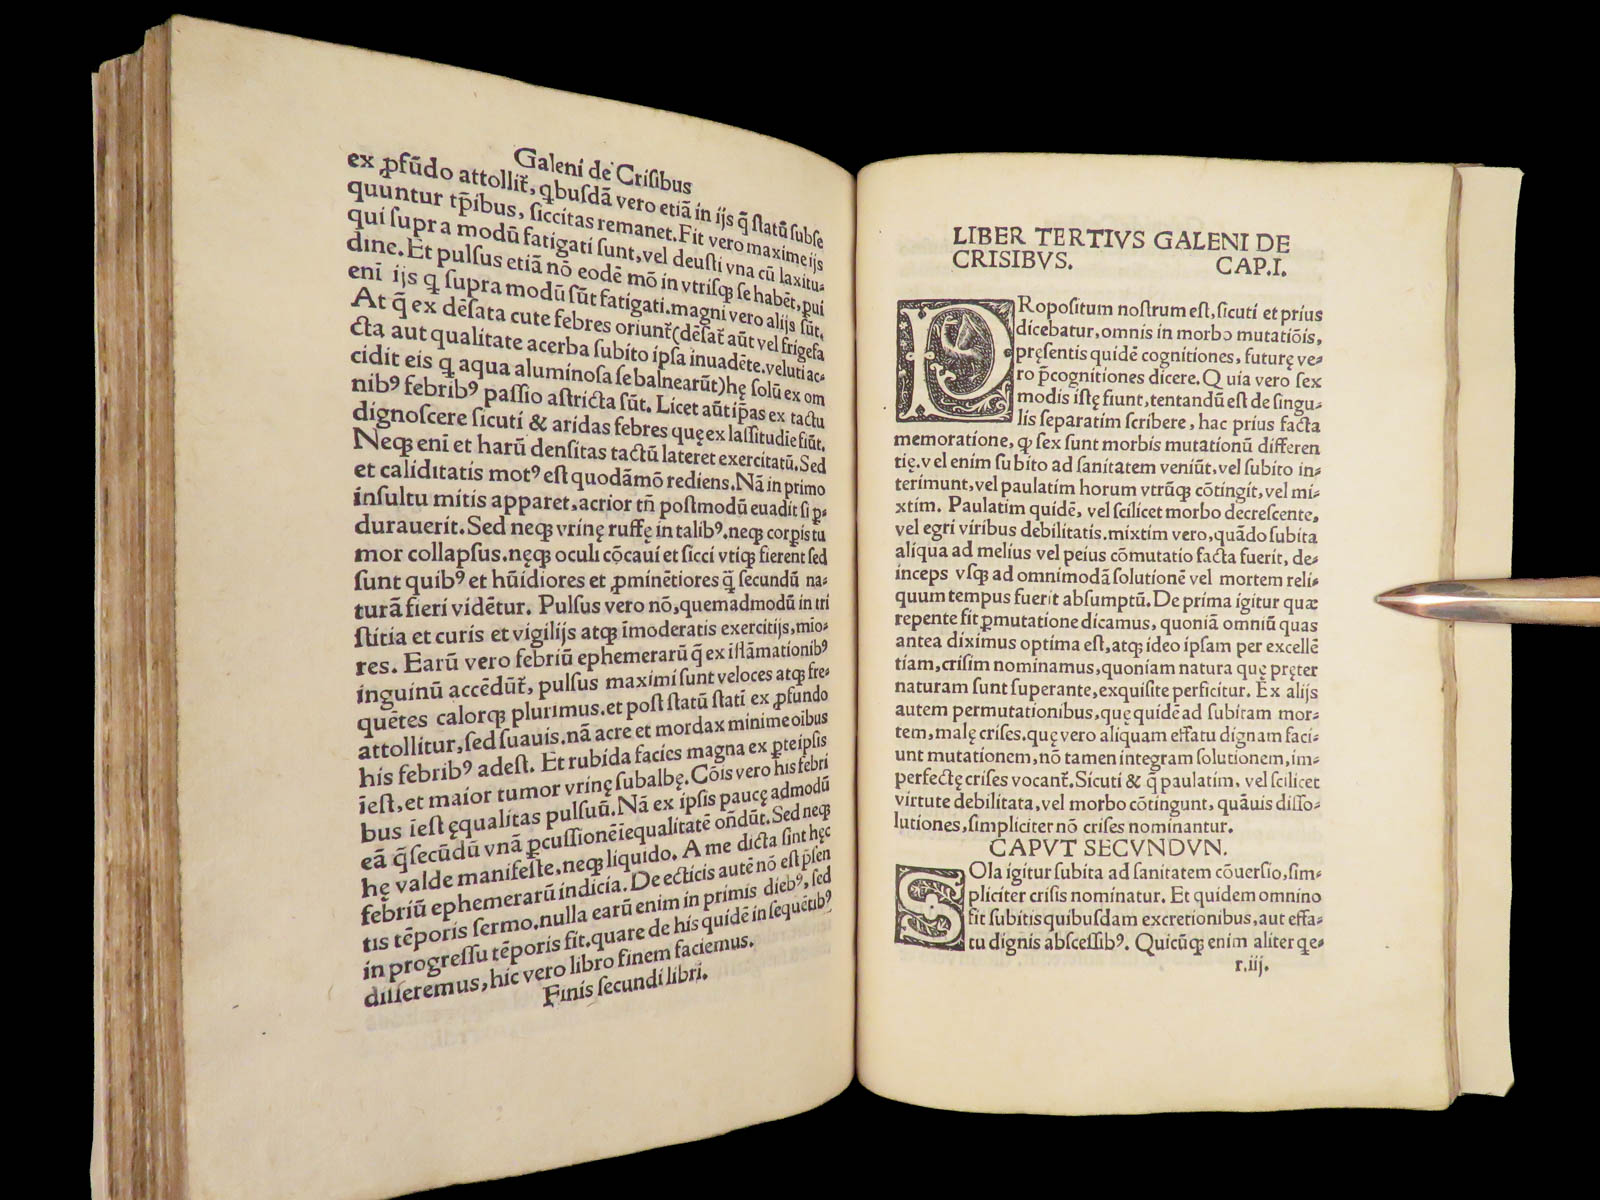 Galeni de Crisibus
ex ꝓfūdo attollit᷑, qbusdā vero etiā in ijs q̄ statū subse
quuntur tp̄ibus, siccitas remanet. Fit vero maxime ijs
qui supra modū fatigati sunt, vel deusti vna cū laxitu-
dine. Et pulsus etiā nō eodē mō in vtrisqꝫ se habēt, pui
eni ijs q̨ supra modū sūt fatigati. magni vero alijs sūt.
At q̄ ex dēsata cute febres oriunt᷑(dēsat᷑ aūt vel frigefa
cta aut qualitate acerba subito ipsa inuadēte. veluti ac-
cidit eis q̨ aqua aluminosa se balnearūt)hę solū ex om
nibꝰ febribꝰ passio astricta sūt. Licet aūt ip̄as ex tactu
dignoscere sicuti & aridas febres quę ex lassitudie fiūt.
Neqꝫ eni et harū densitas tactū lateret exercitatū. Sed
et caliditatis motꝰ est quodāmō rediens. Nā in primo
insultu mitis apparet, acrior tn̄ postmodū euadit si ꝑ-
durauerit. Sed neqꝫ vrinę ruffę in talibꝰ. neqꝫ corpis tu
mor collapsus. nęqꝫ oculi cōcaui et sicci vtiqꝫ fierent sed
sunt quibꝰ et hūidiores et ꝓminētiores q̄ secundū na-
turā fieri vidētur. Pulsus vero nō, quemadmodū in tri
stitia et curis et vigilijs atqꝫ īmoderatis exercitijs, mio-
res. Earū vero febriū ephemerarū q̄ ex iflāmationibꝰ
inguinū accēdūt᷑, pulsus maximi sunt veloces atqꝫ fre-
quētes calorqꝫ plurimus. et post statū stati ex ꝓfundo
attollitur, sed suauis. nā acre et mordax minime oibus
his febribꝰ adest. Et rubida facies magna ex ꝑte ipsis
īest, et maior tumor vrinę subalbę. Cōis vero his febri
bus īest ęqualitas pulsuū. Nā ex ipsis paucę admodū
eā q̄ secūdū vnā ꝑcussionē īequalitatē ondūt. Sed neqꝫ
hę valde manifeste, neqꝫ liquido. A me dicta sint hęc
febriū ephemerarū indicia. De ecticis autē nō est p̄sen
tis tēporis sermo. nulla earū enim in primis diebꝰ, sed
in progressu tēporis fit. quare de his quidē in sequētibꝰ
disseremus, hic vero libro finem faciemus.
Finis secundi libri.
LIBER TERTIVS GALENI DE
CRISIBVS. CAP.I.
PRopositum nostrum est, sicuti et prius
dicebatur, omnis in morbo mutatiōis,
pręsentis quidē cognitiones, futurę ve-
ro p̄cognitiones dicere. Quia vero sex
modis istę fiunt, tentandū est de singu-
lis separatim scribere, hac prius facta
memoratione, ꝙ sex sunt morbis mutationū differen
tię. vel enim subito ad sanitatem veniūt, vel subito in-
terimunt, vel paulatim horum vtrūqꝫ cōtingit, vel mi-
xtim. Paulatim quidē, vel scilicet morbo decrescente,
vel egri viribus debilitatis. mixtim vero, quādo subita
aliqua ad melius vel peius cōmutatio facta fuerit, de-
inceps vsqꝫ ad omnimodā solutionē vel mortem reli-
quum tempus fuerit absumptū. De prima igitur quæ
repente fit ꝑmutatione dicamus, quoniā omniū quas
antea diximus optima est, atqꝫ ideo ipsam per excellē
tiam, crisim nominamus, quoniam natura quę pręter
naturam sunt superante, exquisite perficitur. Ex alijs
autem permutationibus, quę quidē ad subitam mor-
tem, malę crises. quę vero aliquam effatu dignam faci-
unt mutationem, nō tamen integram solutionem, im-
perfectę crises vocant᷑. Sicuti & q̄ paulatim, vel scilicet
virtute debilitata, vel morbo cōtingunt, quāuis disso-
lutiones, simpliciter nō crises nominantur.
CAPVT SECVNDVN.
SOla igitur subita ad sanitatem cōuersio, sim-
pliciter crisis nominatur. Et quidem omnino
fit subitis quibusdam excretionibus, aut effa-
tu dignis abscessibꝰ. Quicūqꝫ enim aliter qe-
r.iij.